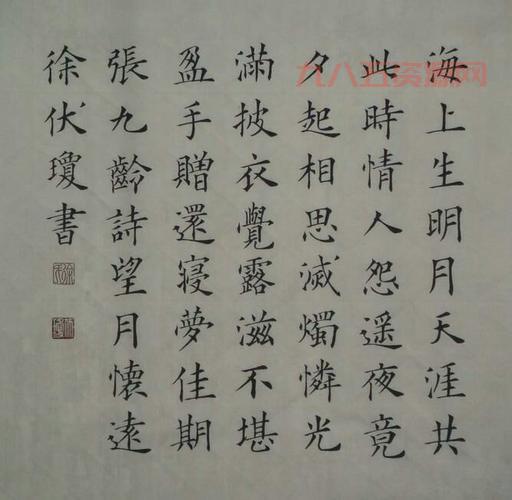 海上生明月天涯共
此時情人怨遥夜竟
夕起相思滅燭憐光
滿披衣覺露滋不堪
盈手贈還寝夢佳期
張九齡詩望月懷遠
徐伏瓊書
九八五资源网